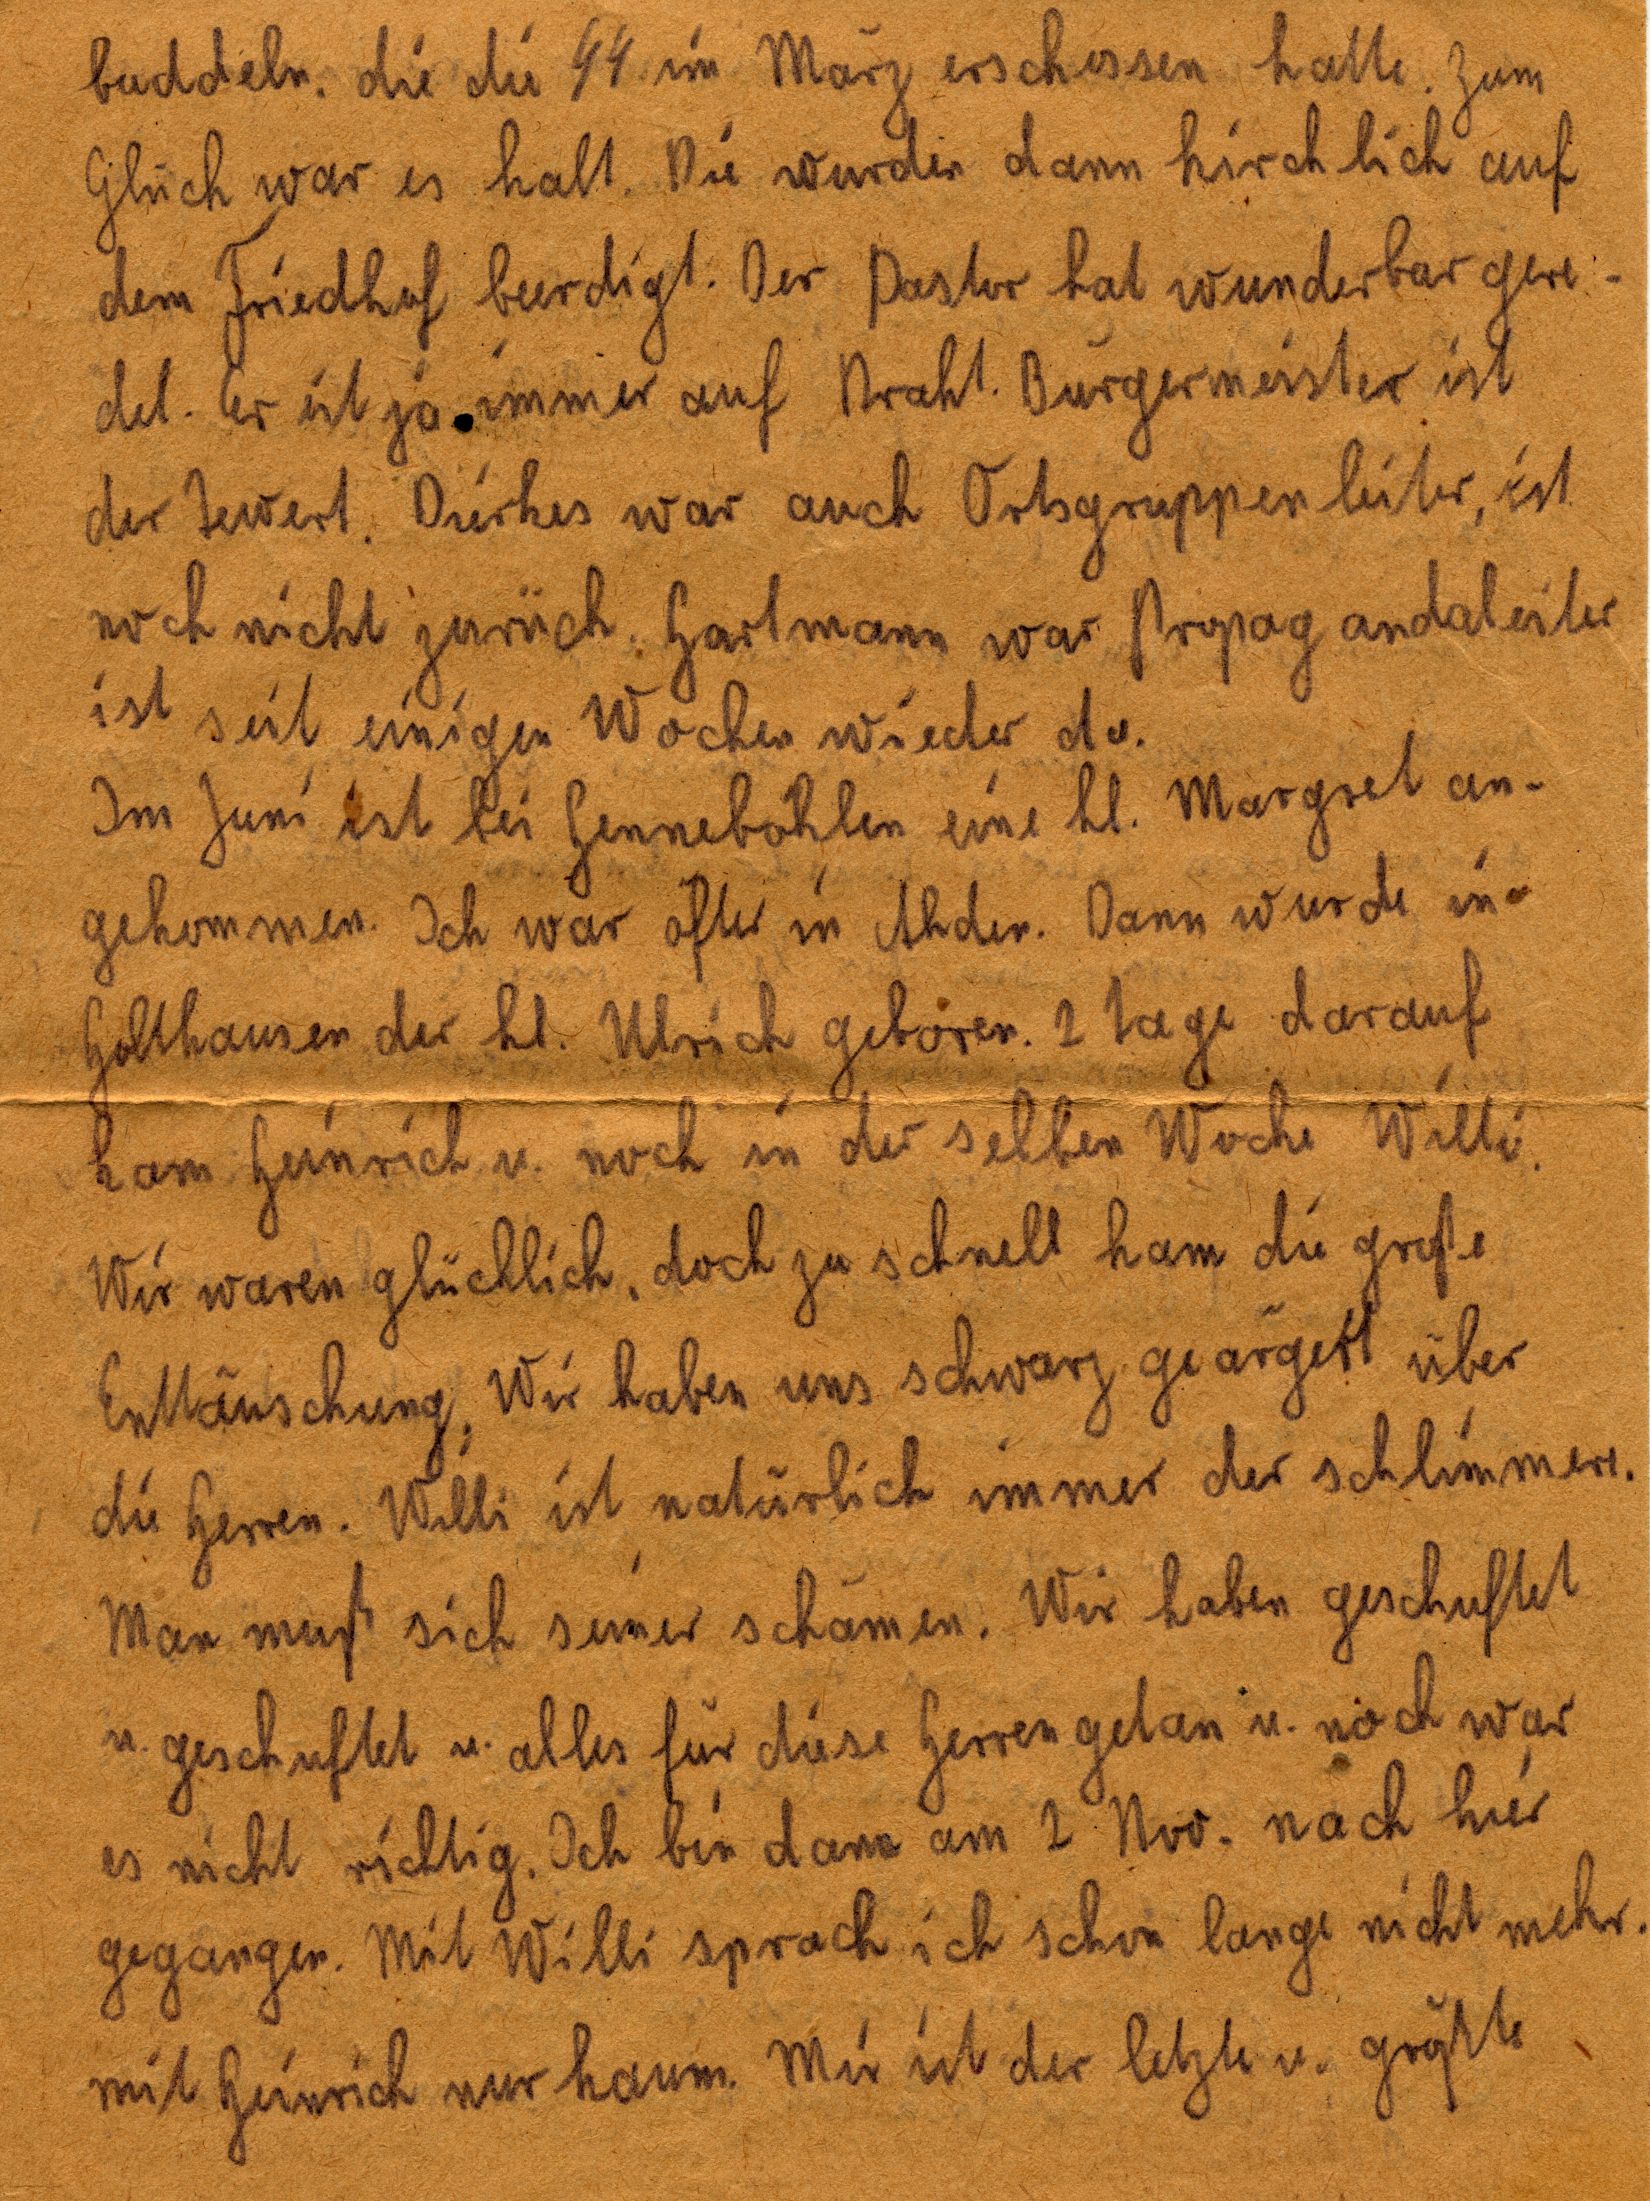 buddeln, die die SS im März erschossen hatte. Zum
Glück war es kalt. Die wurden dann kirchlich auf
dem Friedhof beerdigt. Der Pastor hat wunderbar gere-
det. Er ist ja immer auf Draht. Bürgermeister ist
der Dierkes war auch Ortsgruppenleiter, ist
noch nicht zurück. Hartmann war Propagandaleiter
ist seit einigen Wochen wieder da.
Im Juni ist bei Henneböhlen eine kl. Margret an-
gekommen. Ich war öfter in Ahden. Dann wurde in
Holthausen der kl. Ulrich geboren. 2 Tage darauf
kam Heinrich u. noch in der selben Woche Willi.
Wir waren glücklich, doch zu schnell kam die große
Enttäuschung. Wir haben uns schwarz geärgert über
die Herren. Willi ist natürlich immer der schlimmere.
Man muß sich seiner schämen. Wir haben geschuftet
u. geschuftet u. alles für diese Herren getan u. noch war
es nicht richtig. Ich bin dann am 2 Nov. nach hier
gegangen. Mit Willi sprach ich schon lange nicht mehr.
mit Heinrich nur kaum. Mir ist der letzte u. größte